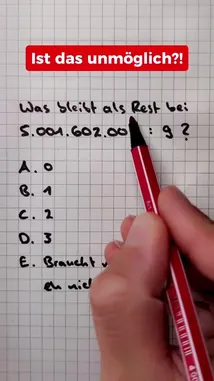 Ist das unmöglich?!
Was bleibt als Rest bei
5.001.602.00 : 9 ?
A. 0
B. 1
C. 2
D. 3
E. Braucht
eh